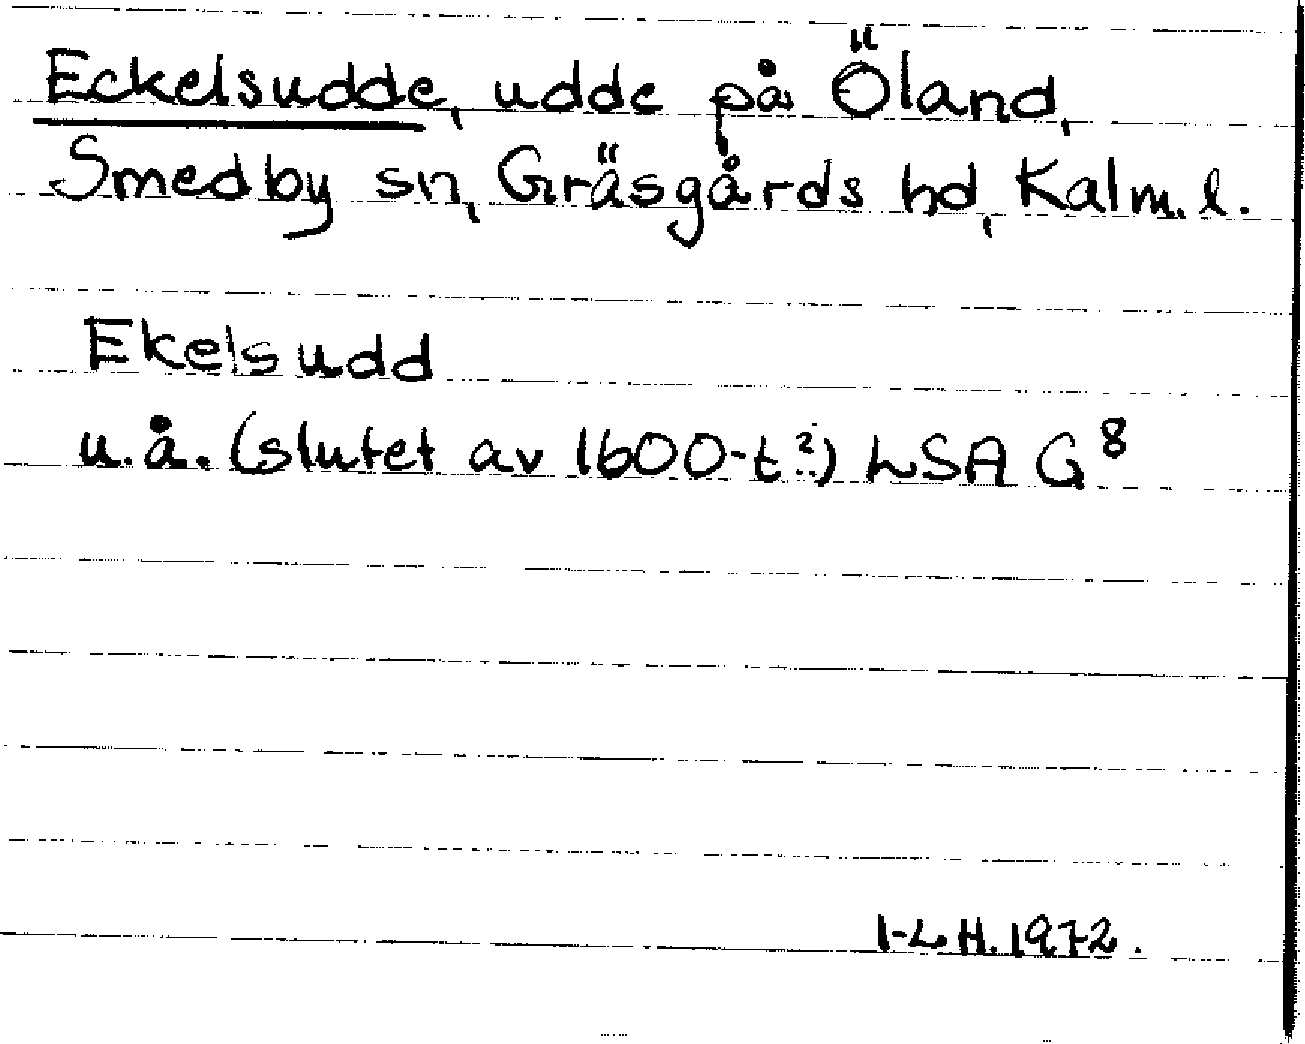 Eckelsudde, udde på Öland,
Smedby sn, Gräsgårds hd, Kalm. l.
Ekelsudd
u.å. (slutet av 1600-t?) LSA G⁸
I-L H. 1972.